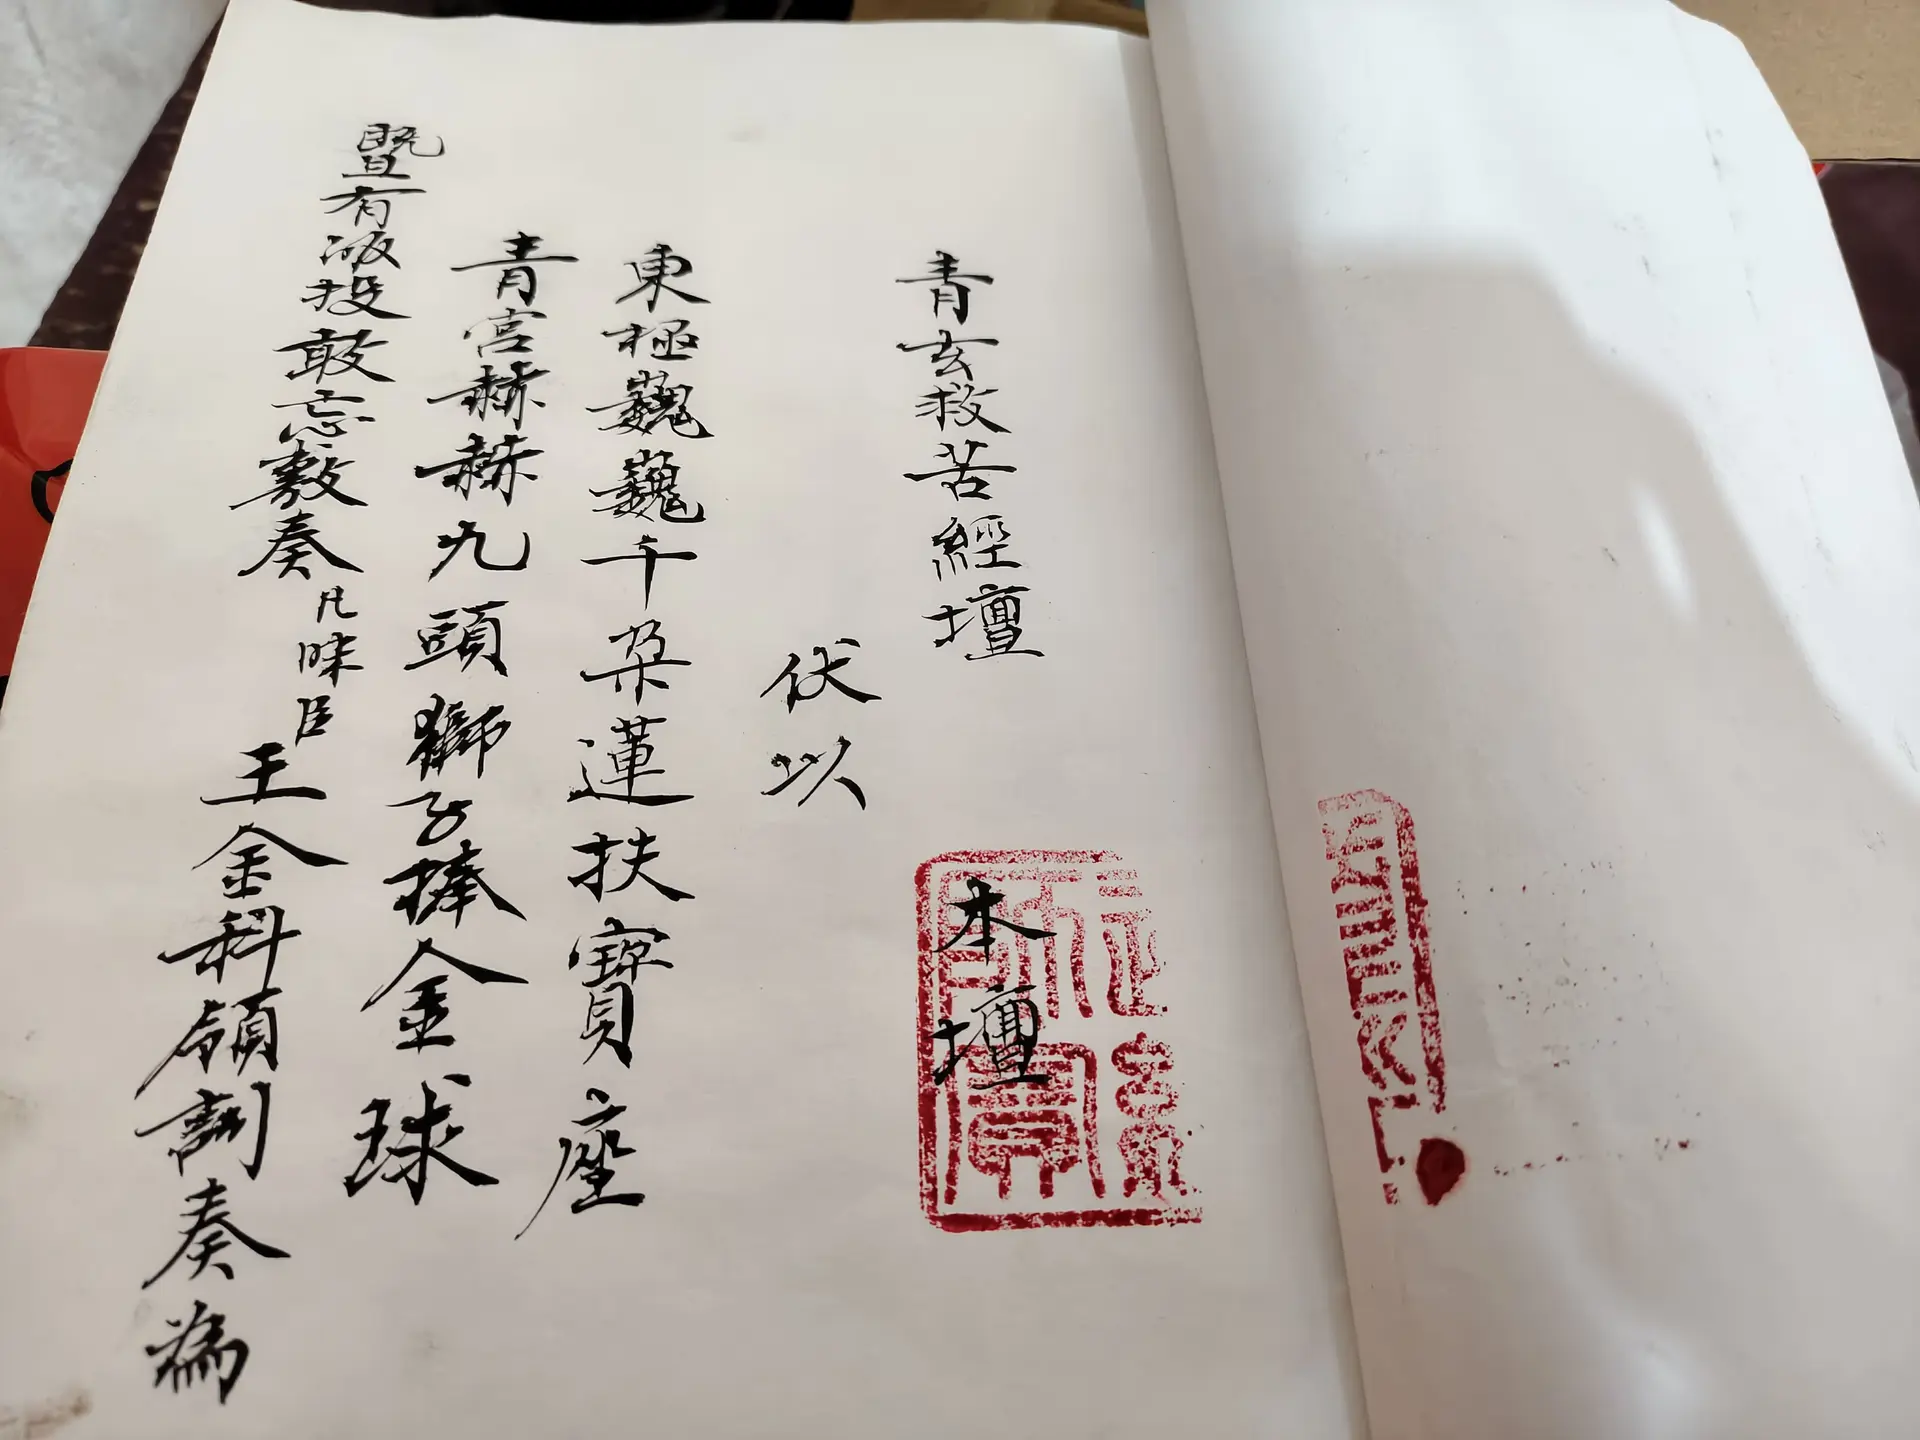 青玄救苦經壇 本壇
伏以
東極巍巍千朵蓮扶寶座
青宮赫赫九頭獅子捧金球
暨有皈投敢忘敷奏凡昧臣王金科領詞奏為